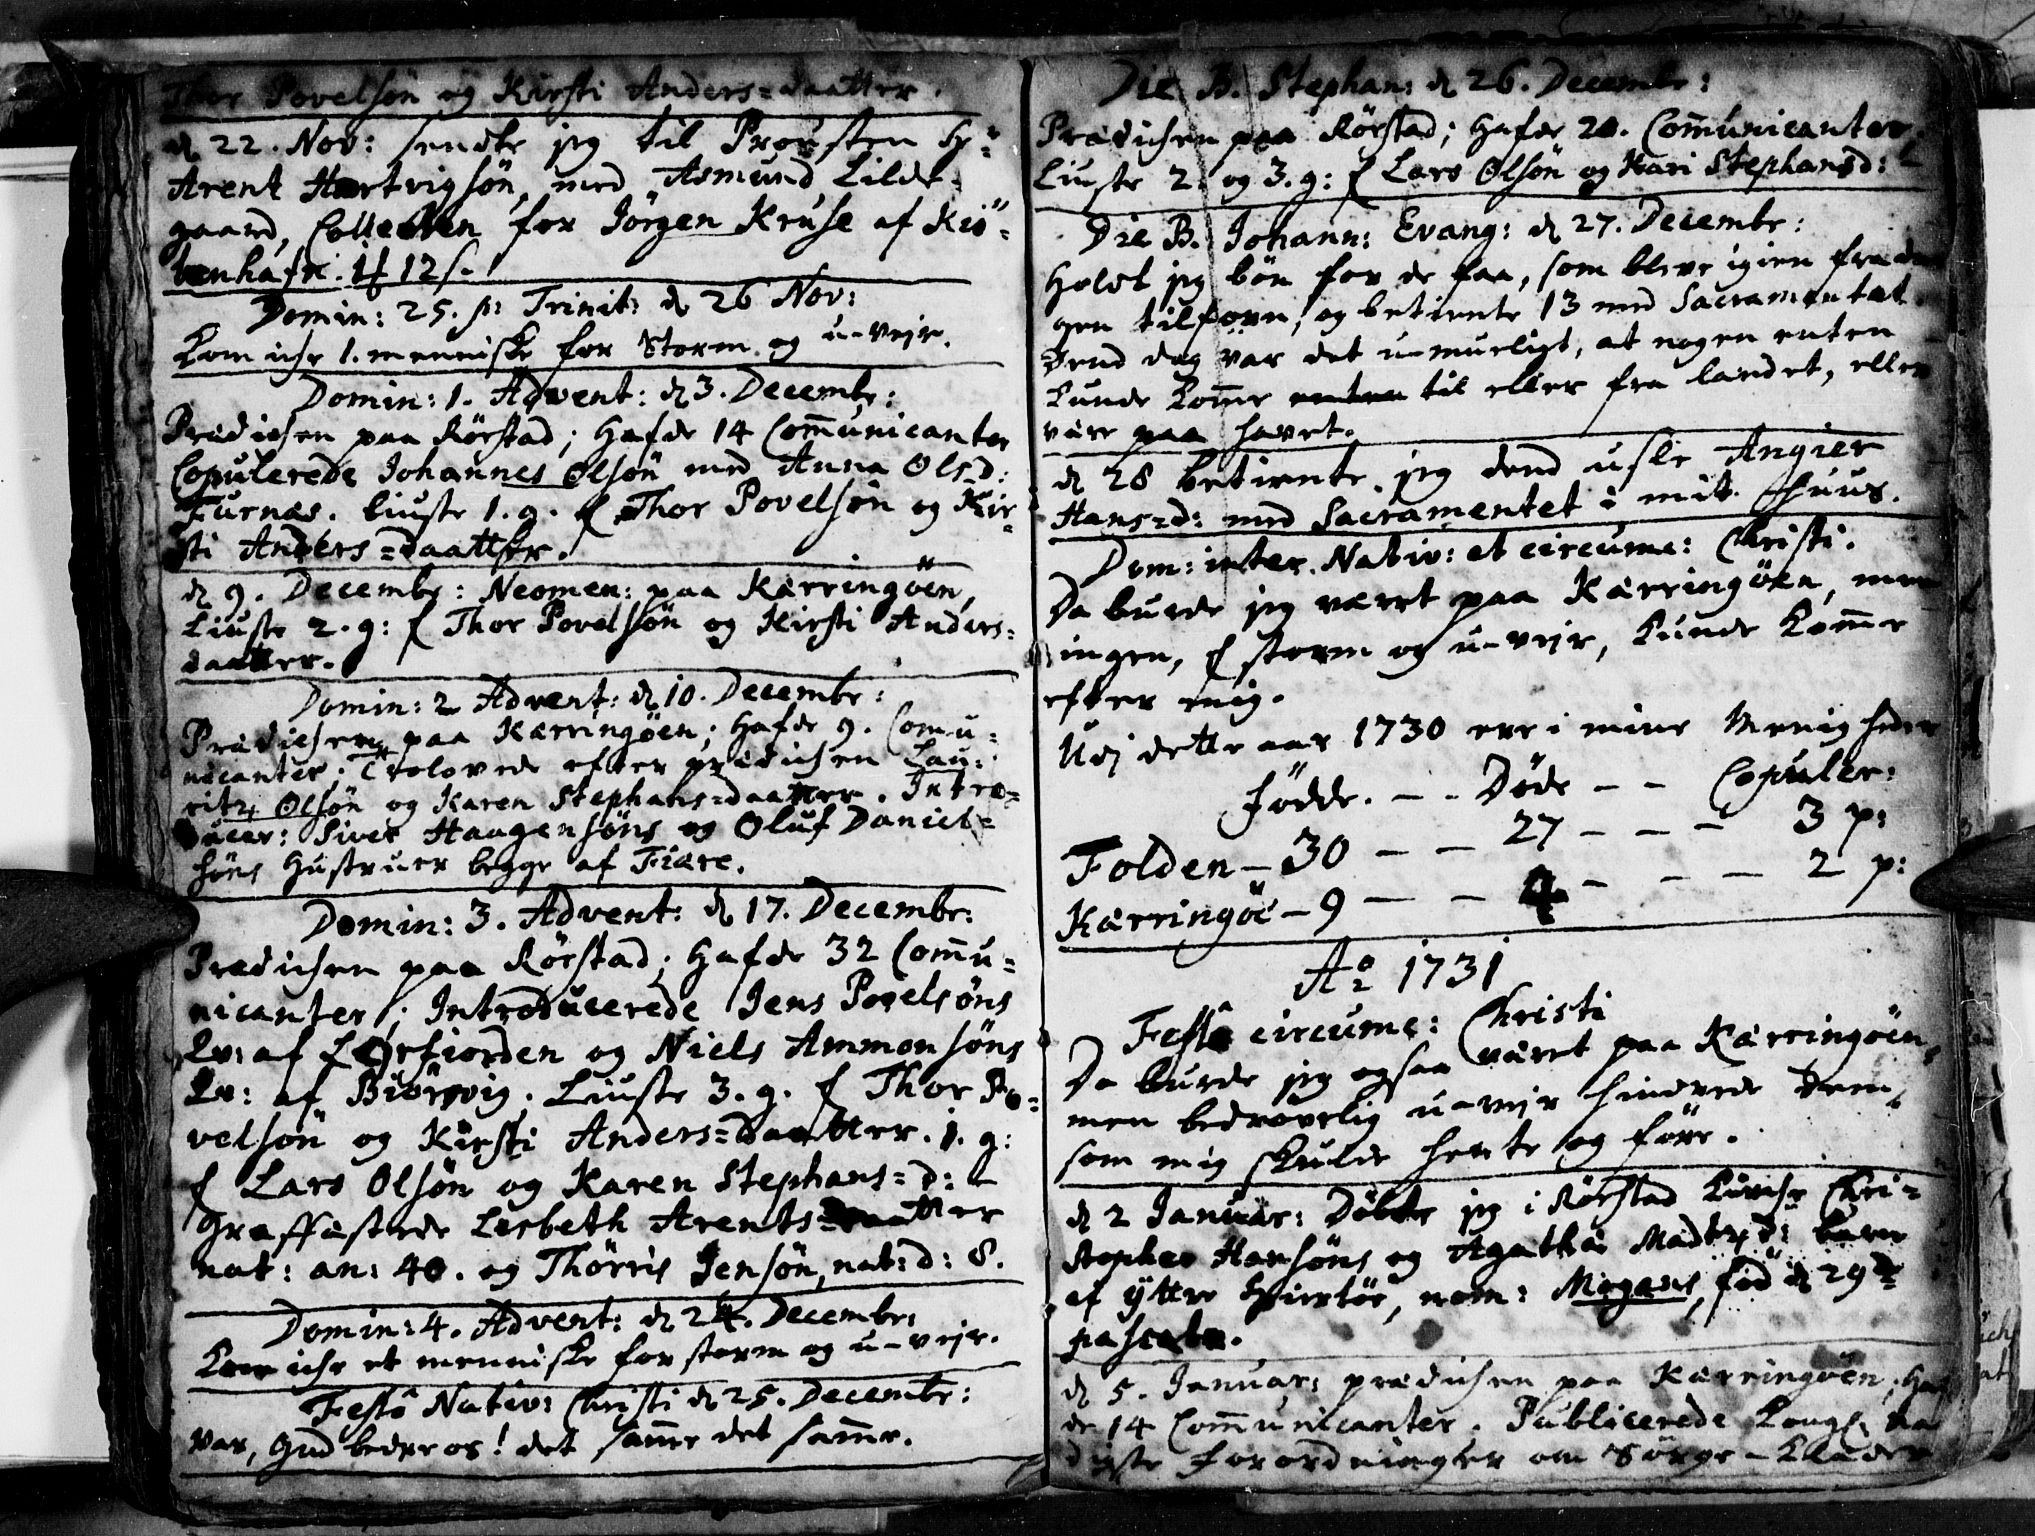 Thor Povelsøn og Kirsti Anders=daatter.
d 22. Nov: sendte jeg til Prousten H:
Arent Hartvigsøn, med Asmund Lilde-
gaard, Collecten for Jørgen Kruse af Kiö-
benhafn. 12 s.
Domin: 25. p: Trinit: d 26 Nov:
Kom iche 1. menniske for Storm og u-vejr.
Domin: 1. Advent: d 3. Decembr:
Prædichen paa Rörstad; Hafde 14 Communicanter
Copulerede Johannes Olsøn med Anna Ols-d:
Furnæs. liuste 1. g. f Thor Povelsøn og Kir-
sti Anders=daatter.
d 9. Decembr: Neomen: paa Kærringöen,
Liuste 2. g: f Thor Povelsøn og Kirsti Anders=
daatter.
Domin: 2 Advent: d 10. Decembr:
Prædichen paa Kærringöen; Hafde 9. Comu=
nicanter. Trolovede efter prædichen Lau-
ritz Olsøn og Karen Stephans=daatter. Intro=
ducer: Siver Haagensøns og Oluf Daniel=
søns Hustruer begge af Fiære.
Domin: 3. Advent: d 17. Decembr:
Prædichen paa Rörstad; Hafde 32 Commu=
nicanter; Introducerede Jens Povelsøns
Qv: af Lerfiorden og Niels Ammonsøns
Qv: af Biörsvig. Liuste 3. g. f Thor Po=
velsøn og Kirsti Anders=daatter. 1. g:
f Lars Olsøn og Karen Stephans=d:
Graffæstede Lisbeth Arents=daatter
nat: an: 40. og Thörris Jensøn, nat: d: 8.
Domin: 4. Advent: d 24. Decembr:
Kom iche et menniske for storm og u-vejr.
Festô Nativ: Christi d 25. Decembr:
Var, Gud bedre os! det samme det samme.
Die B. Stephan: d 26. Decembr:
Prædichen paa Rörstad; Hafde 20. Communicanter.
Liuste 2. og 3. g: f Lars Olsøn og Kari Stephansd:
Die B. Johann: Evang: d 27. Decembr:
Holdt jeg bön for de faa, som bleve igien fra da-
gen tilforn, og betiente 13 med Sacramentet.
Dend dag var det u-mueligt, at nogen enten
kunde komme enten til eller fra landet, eller
være paa havet.
d 28 betiente jeg dend usle Angier
Hans=d: med Sacramentet i mit Huus.
Dom: inter Nativ: et circumc: Christi.
Da burde jeg været paa Kærringöen, men
ingen, f storm og u-vejr, kunde komme
efter mig.
Udj dette aar 1730 ere i mine Menigheder
Födde. - - Döde - - Copuler:
Folden - 30 - - 27 - - - 3 p:
Kærringöe - 9 - - 4 - - - 2 p:
Ao 1731
Festô circumc: Christi
Da burde jeg ogsaa været paa Kærringöen,
men bedrøvelig u-vejr hindrede dem,
som mig skulde hente og före.
d 2 Januar: Döbte jeg i Rörstad kirche Chri-
stopher Hansøns og Agatha Madtzd: barn
af ytter Hiertöe, nom: Mogens, föd d 29de
passato.
d 5. Januar: prædichen paa Kærringöen; Haf-
de 14 Communicanter. Publicerede Kongl: naa
digste forordninger om Sörge-klæder